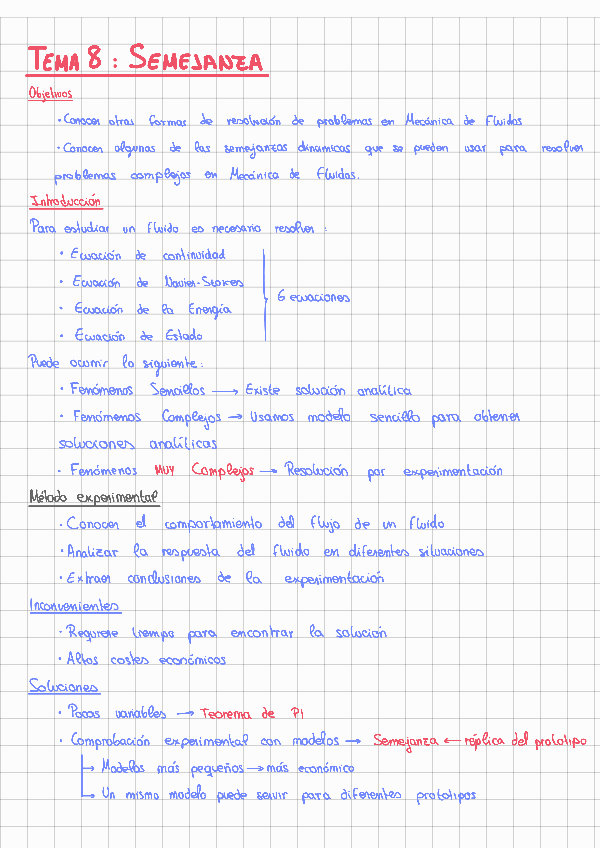 TEMA 8 : SEMEJANZA
Objetivos
· Conocer otras formas de resolución de problemas en Mecánica de Fluidos
· Conocer algunas de las semejanzas dinámicas que se pueden usar para resolver
problemas complejos en Mecánica de Fluidos.
Introducción
Para estudiar un fluido es necesario resolver :
· Ecuación de continuidad
· Ecuación de Navier-Stokes
6 ecuaciones
· Ecuación de la Energía
· Ecuación de Estado
Puede ocurrir lo siguiente:
· Fenómenos Sencillos → Existe solución analítica
· Fenómenos Complejos → Usamos modelo sencillo para obtener
soluciones analíticas
· Fenómenos MUY Complejos → Resolución por experimentación
Método experimental
· Conocer el comportamiento del flujo de un fluido
· Analizar la respuesta del fluido en diferentes situaciones
· Extraer conclusiones de la experimentación
Inconvenientes
· Requiere tiempo para encontrar la solución
· Altos costes económicos
Soluciones
· Pocas variables → Teorema de Pi
· Comprobación experimental con modelos → Semejanza ← réplica del prototipo
→ Modelos más pequeños → más económico
→ Un mismo modelo puede servir para diferentes prototipos